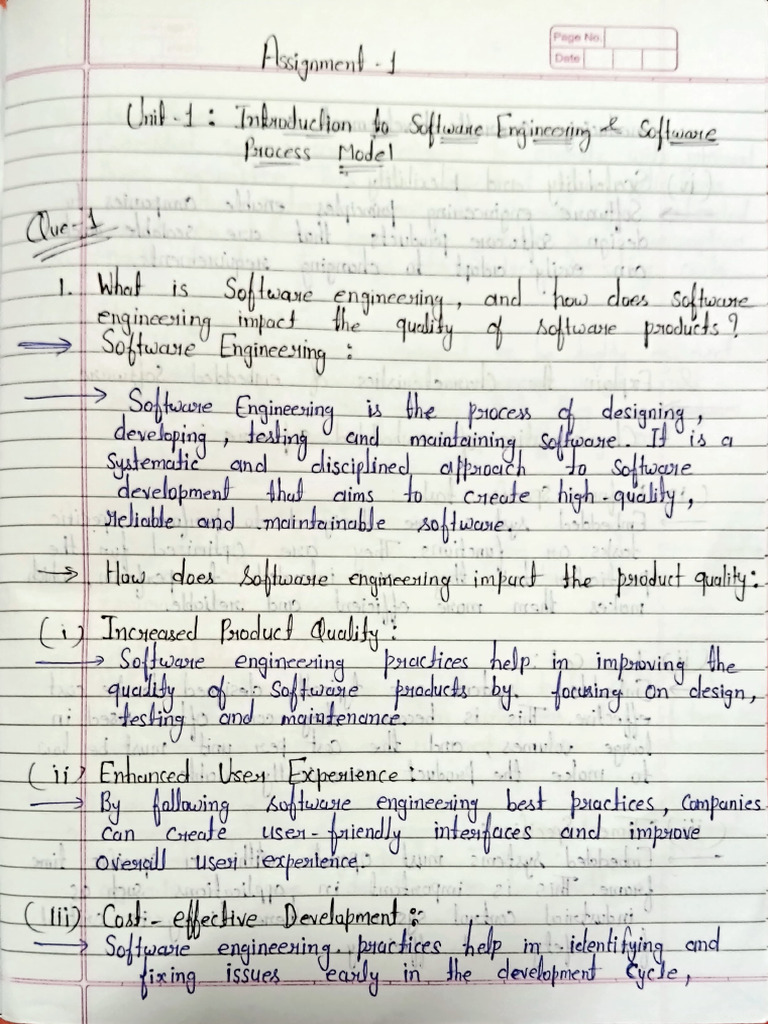 Page No.
Date
Assignment - 1
Unit - 1 : Introduction to Software Engineering & Software
Process Model
Que-1
1. What is Software engineering, and how does software
engineering impact the quality of software products?
Software Engineering :
→ Software Engineering is the process of designing,
developing, testing and maintaining software. It is a
systematic and disciplined approach to software
development that aims to create high-quality,
reliable and maintainable software.
→ How does software engineering impact the product quality:
(i) Increased Product Quality :
→ Software engineering practices help in improving the
quality of software products by focusing on design,
testing and maintenance.
(ii) Enhanced User Experience :
→ By following software engineering best practices, companies
can create user-friendly interfaces and improve
overall user experience.
(iii) Cost - effective Development :
→ Software engineering practices help in identifying and
fixing issues early in the development cycle,